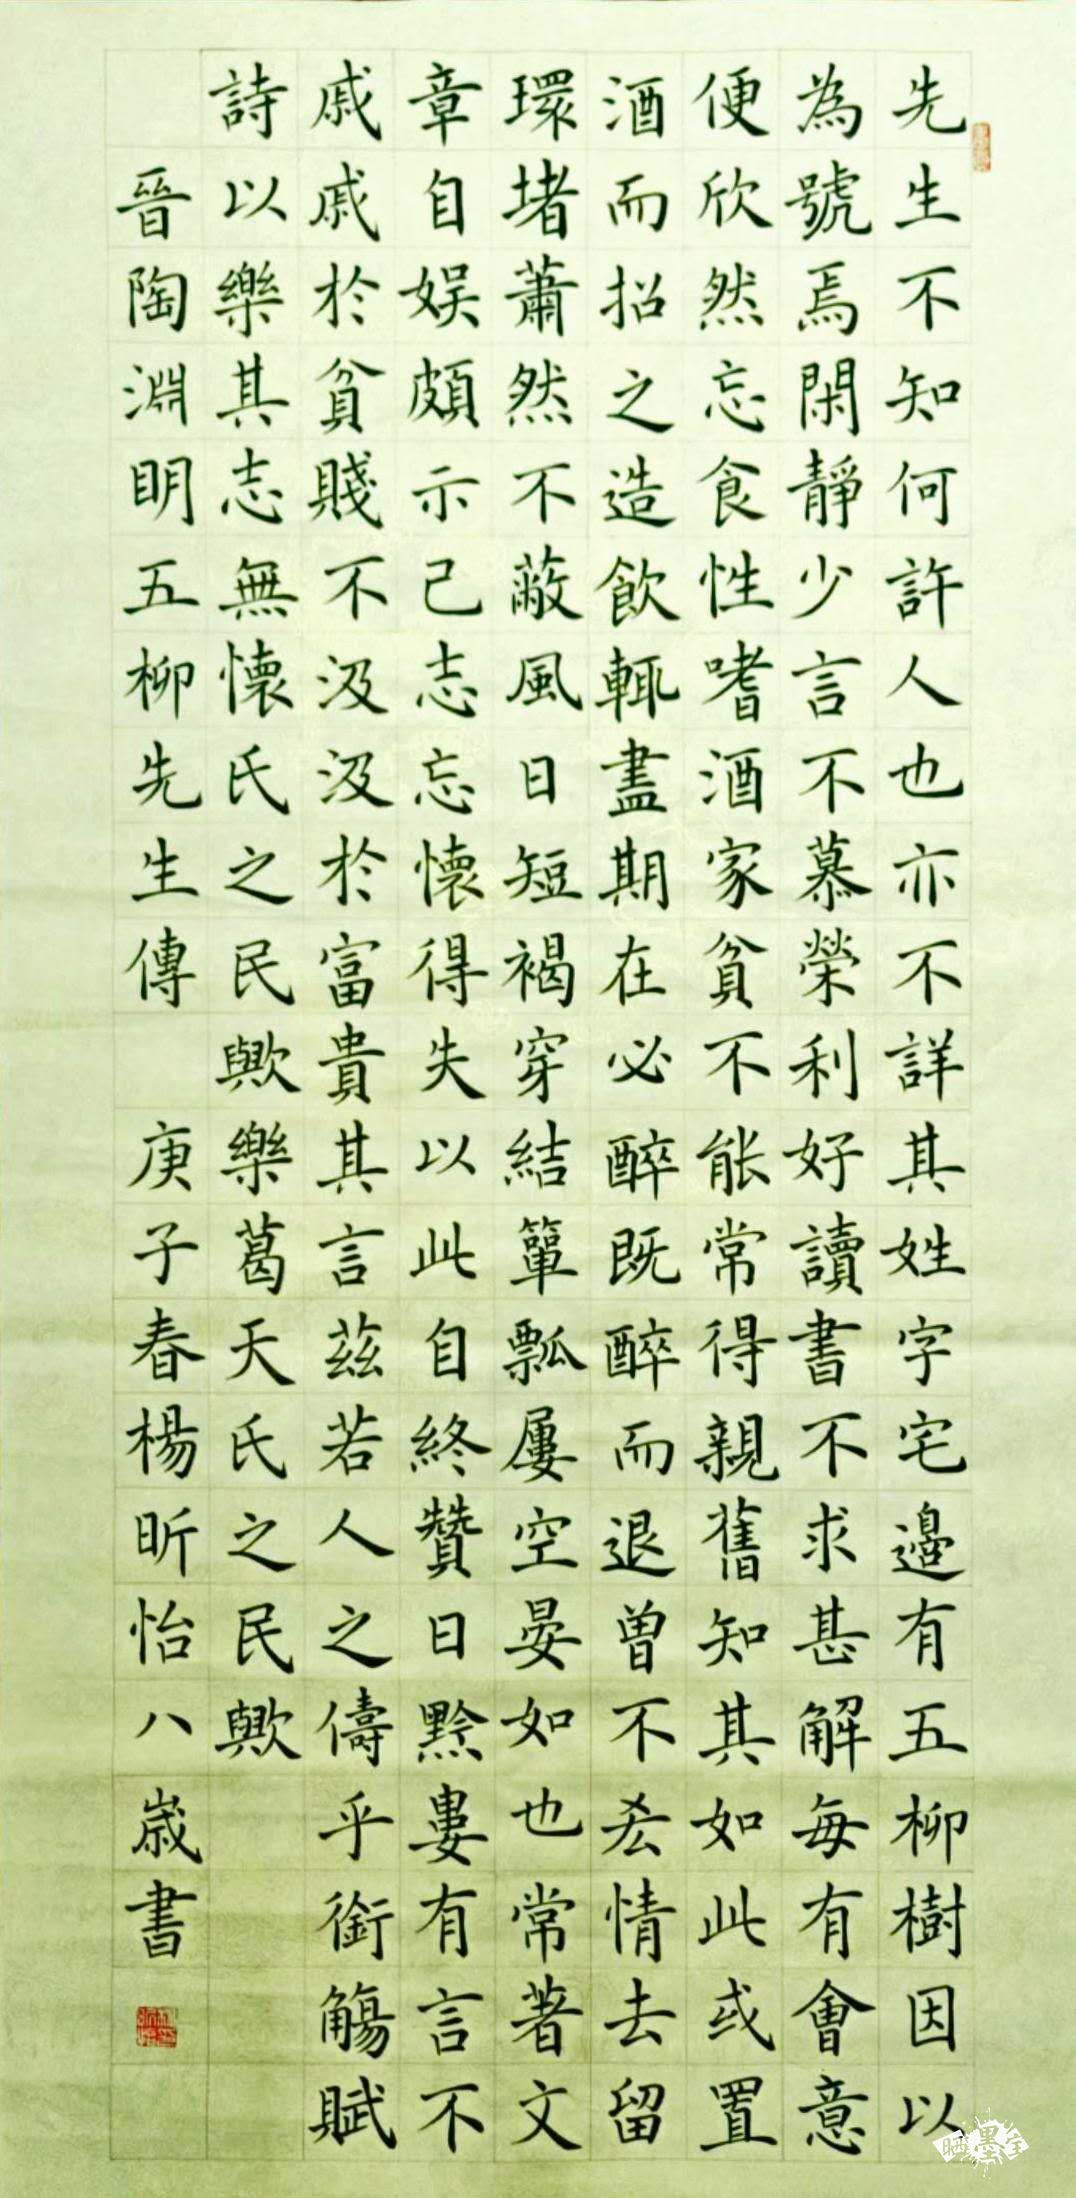 先生不知何許人也亦不詳其姓字宅邊有五柳樹因以
為號焉閑靜少言不慕榮利好讀書不求甚解每有會意
便欣然忘食性嗜酒家貧不能常得親舊知其如此或置
酒而招之造飲輒盡期在必醉既醉而退曾不吝情去留
環堵蕭然不蔽風日短褐穿結簞瓢屢空晏如也常著文
章自娛頗示己志忘懷得失以此自終贊曰黔婁有言不
戚戚於貧賤不汲汲於富貴其言茲若人之儔乎銜觴賦
詩以樂其志無懷氏之民歟樂葛天氏之民歟
晉陶淵明五柳先生傳 庚子春楊昕怡八歲書
晒墨宝